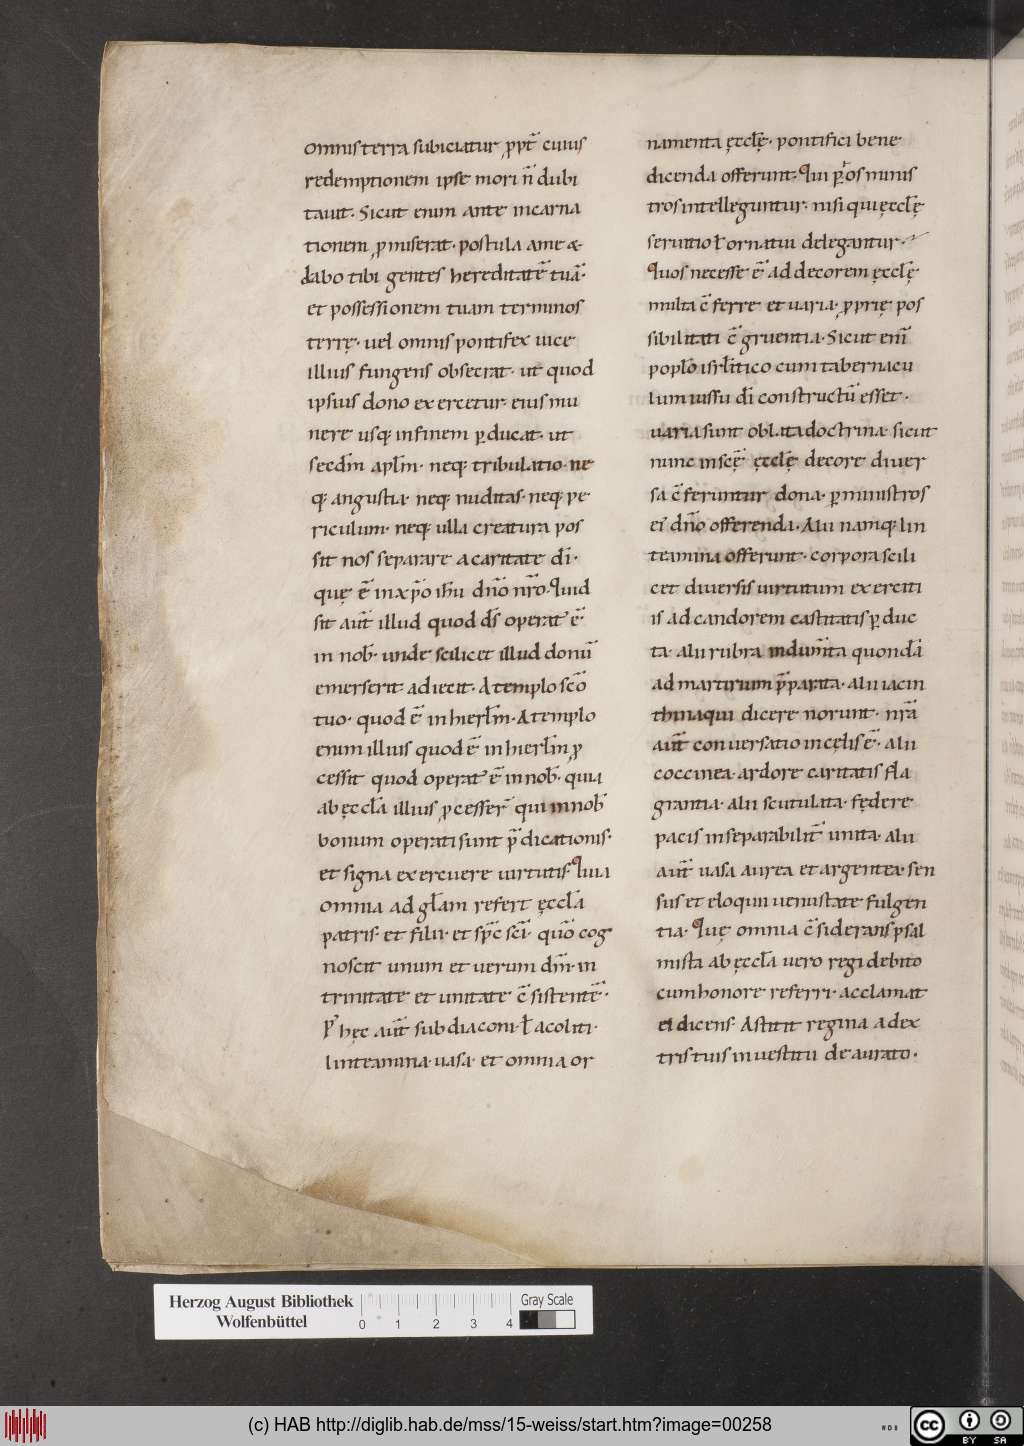 omnis terra subiciatur ꝓpt̄ cuius
redemptionem ipse mori n̄ dubi
tauit. Sicut enim ante incarna
tionem ꝓmiserat. postula a me &
dabo tibi gentes hereditatē tuā.
et possessionem tuam terminos
terrę. uel omnis pontifex uice
illius fungens obsecrat. ut quod
ipsius dono exercetur. eius mu
nere usq; in finem ꝑducat. ut
secdm̄ aplm̄. neq; tribulatio. ne
q; angustia. neq; nuditas. neq; pe
riculum. neq; ulla creatura pos
sit nos separare a caritate dī.
quę ē in xp̄o ihu dn̄o nr̄o. Quid
sit aut̄ illud quod ds̄ operat᷑ ē
in nob̄. unde scilicet illud donū
emerserit adiecit. A templo scō
tuo. quod ē in hierlm̄. A templo
enim illius quod ē in hierlm̄ ꝓ
cessit quod operat᷑ ē in nob̄. quia
ab ęccła illius ꝓcesser̄ qui in nob̄
bonum operati sunt p̄dicationis.
et signa exercuere uirtutis. Quia
omnia ad głam refert ęccła
patris. et filii. et sp̄c scī. quō cog
noscit unum et uerum dm̄. in
trinitate et unitate c̄sistentē.
P᷑ hęc aut̄ subdiaconi. ł acoliti.
linteamina. uasa. et omnia or
namenta ęccłę. pontifici bene
dicenda offerunt. Qui ꝑ os minis
tros intelleguntur. nisi qui ęccłę
seruitio ł ornatui delegantur.
Quos necesse ē ad decorem ęccłę
multa c̄ferre et uaria. ꝓprię pos
sibilitati c̄gruentia. Sicut enī
popło isrłitico cum tabernacu
lum iussu dī constructū esset.
uaria sunt oblata doctrina. sicut
nunc in scę̄ ęccłę decore diuer
sa c̄feruntur dona. ꝑ ministros
ei᷑ dn̄o offerenda. Alii namq; lin
teamina offerunt. corpora scili
cet diuersis uirtutum exerciti
is ad candorem castitatis ꝑduc
ta. alii rubra indum̄ta quondā
ad martirium p̄parata. alii iacin
thina qui dicere norunt. nr̄a
aut̄ conuersatio in cęlis ē. alii
coccinea. ardore caritatis fla
grantia. alii scutulata. fędere
pacis inseparabilit̄ unita. alii
aut̄ uasa aurea et argentea. sen
sus et eloquii uenustate fulgen
tia. Quę omnia c̄siderans psal
mista ab ęccła uero regi debito
cum honore referri. acclamat
ei dicens. Astitit regina a dex
tris tuis in uestitu deaurato.
Herzog August Bibliothek
Wolfenbüttel
0 1 2 3 4
Gray Scale
(c) HAB http://diglib.hab.de/mss/15-weiss/start.htm?image=00258
WDB
cc
BY SA